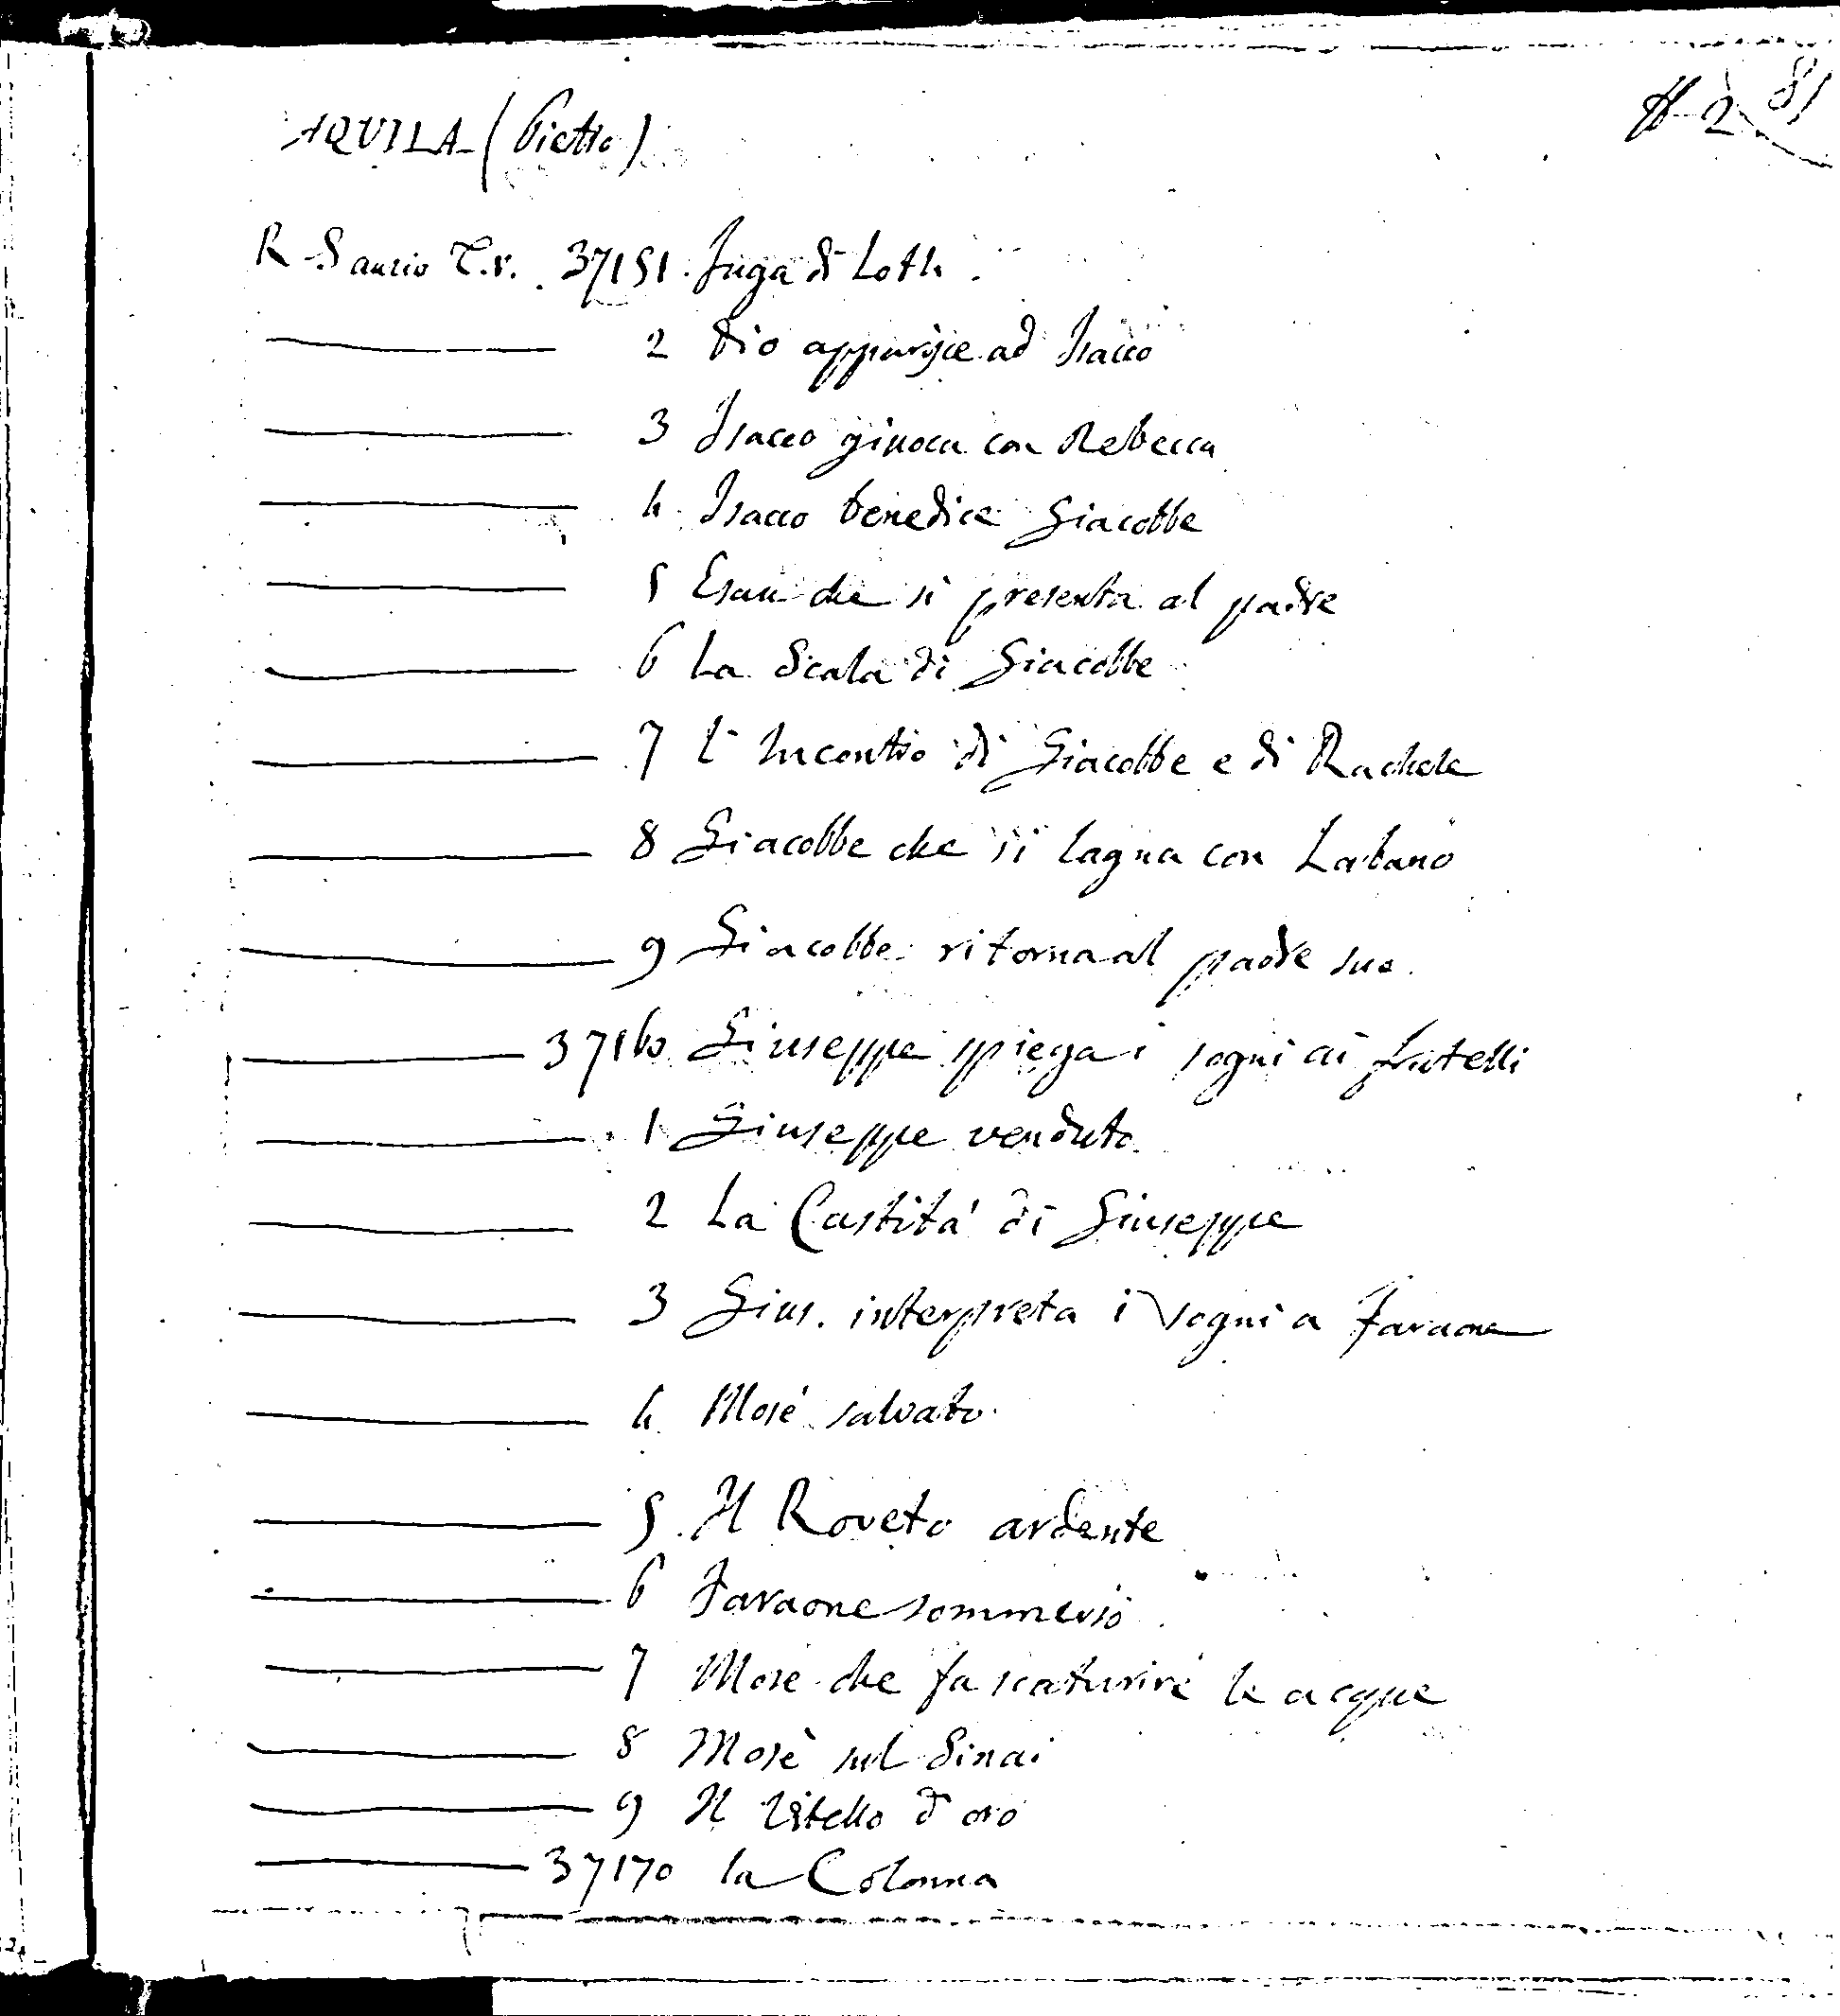 81
# 2
AQUILA (Pietro)
R Sanzio T.s. 37151 Fuga di Loth.
2 Dio apparisce ad Isacco
3 Isacco giuoca con Rebecca
4 Isacco benedice Giacobbe
5 Esau che si presenta al padre
6 La Scala di Giacobbe
7 L'Incontro di Giacobbe e di Rachele
8 Giacobbe che si lagna con Labano
9 Giacobbe ritorna al padre suo.
37160 Giuseppe spiega i sogni ai fratelli
1 Giuseppe venduto
2 La Castitá di Giuseppe
3 Gius. interpreta i sogni a Faraone
4 Mosé salvato
5 Il Roveto ardente
6 Faraone sommerso
7 Mose che fa scaturire le acque
8 Mosè sul Sinai
9 Il Vitello d'oro
37170 la Colonna